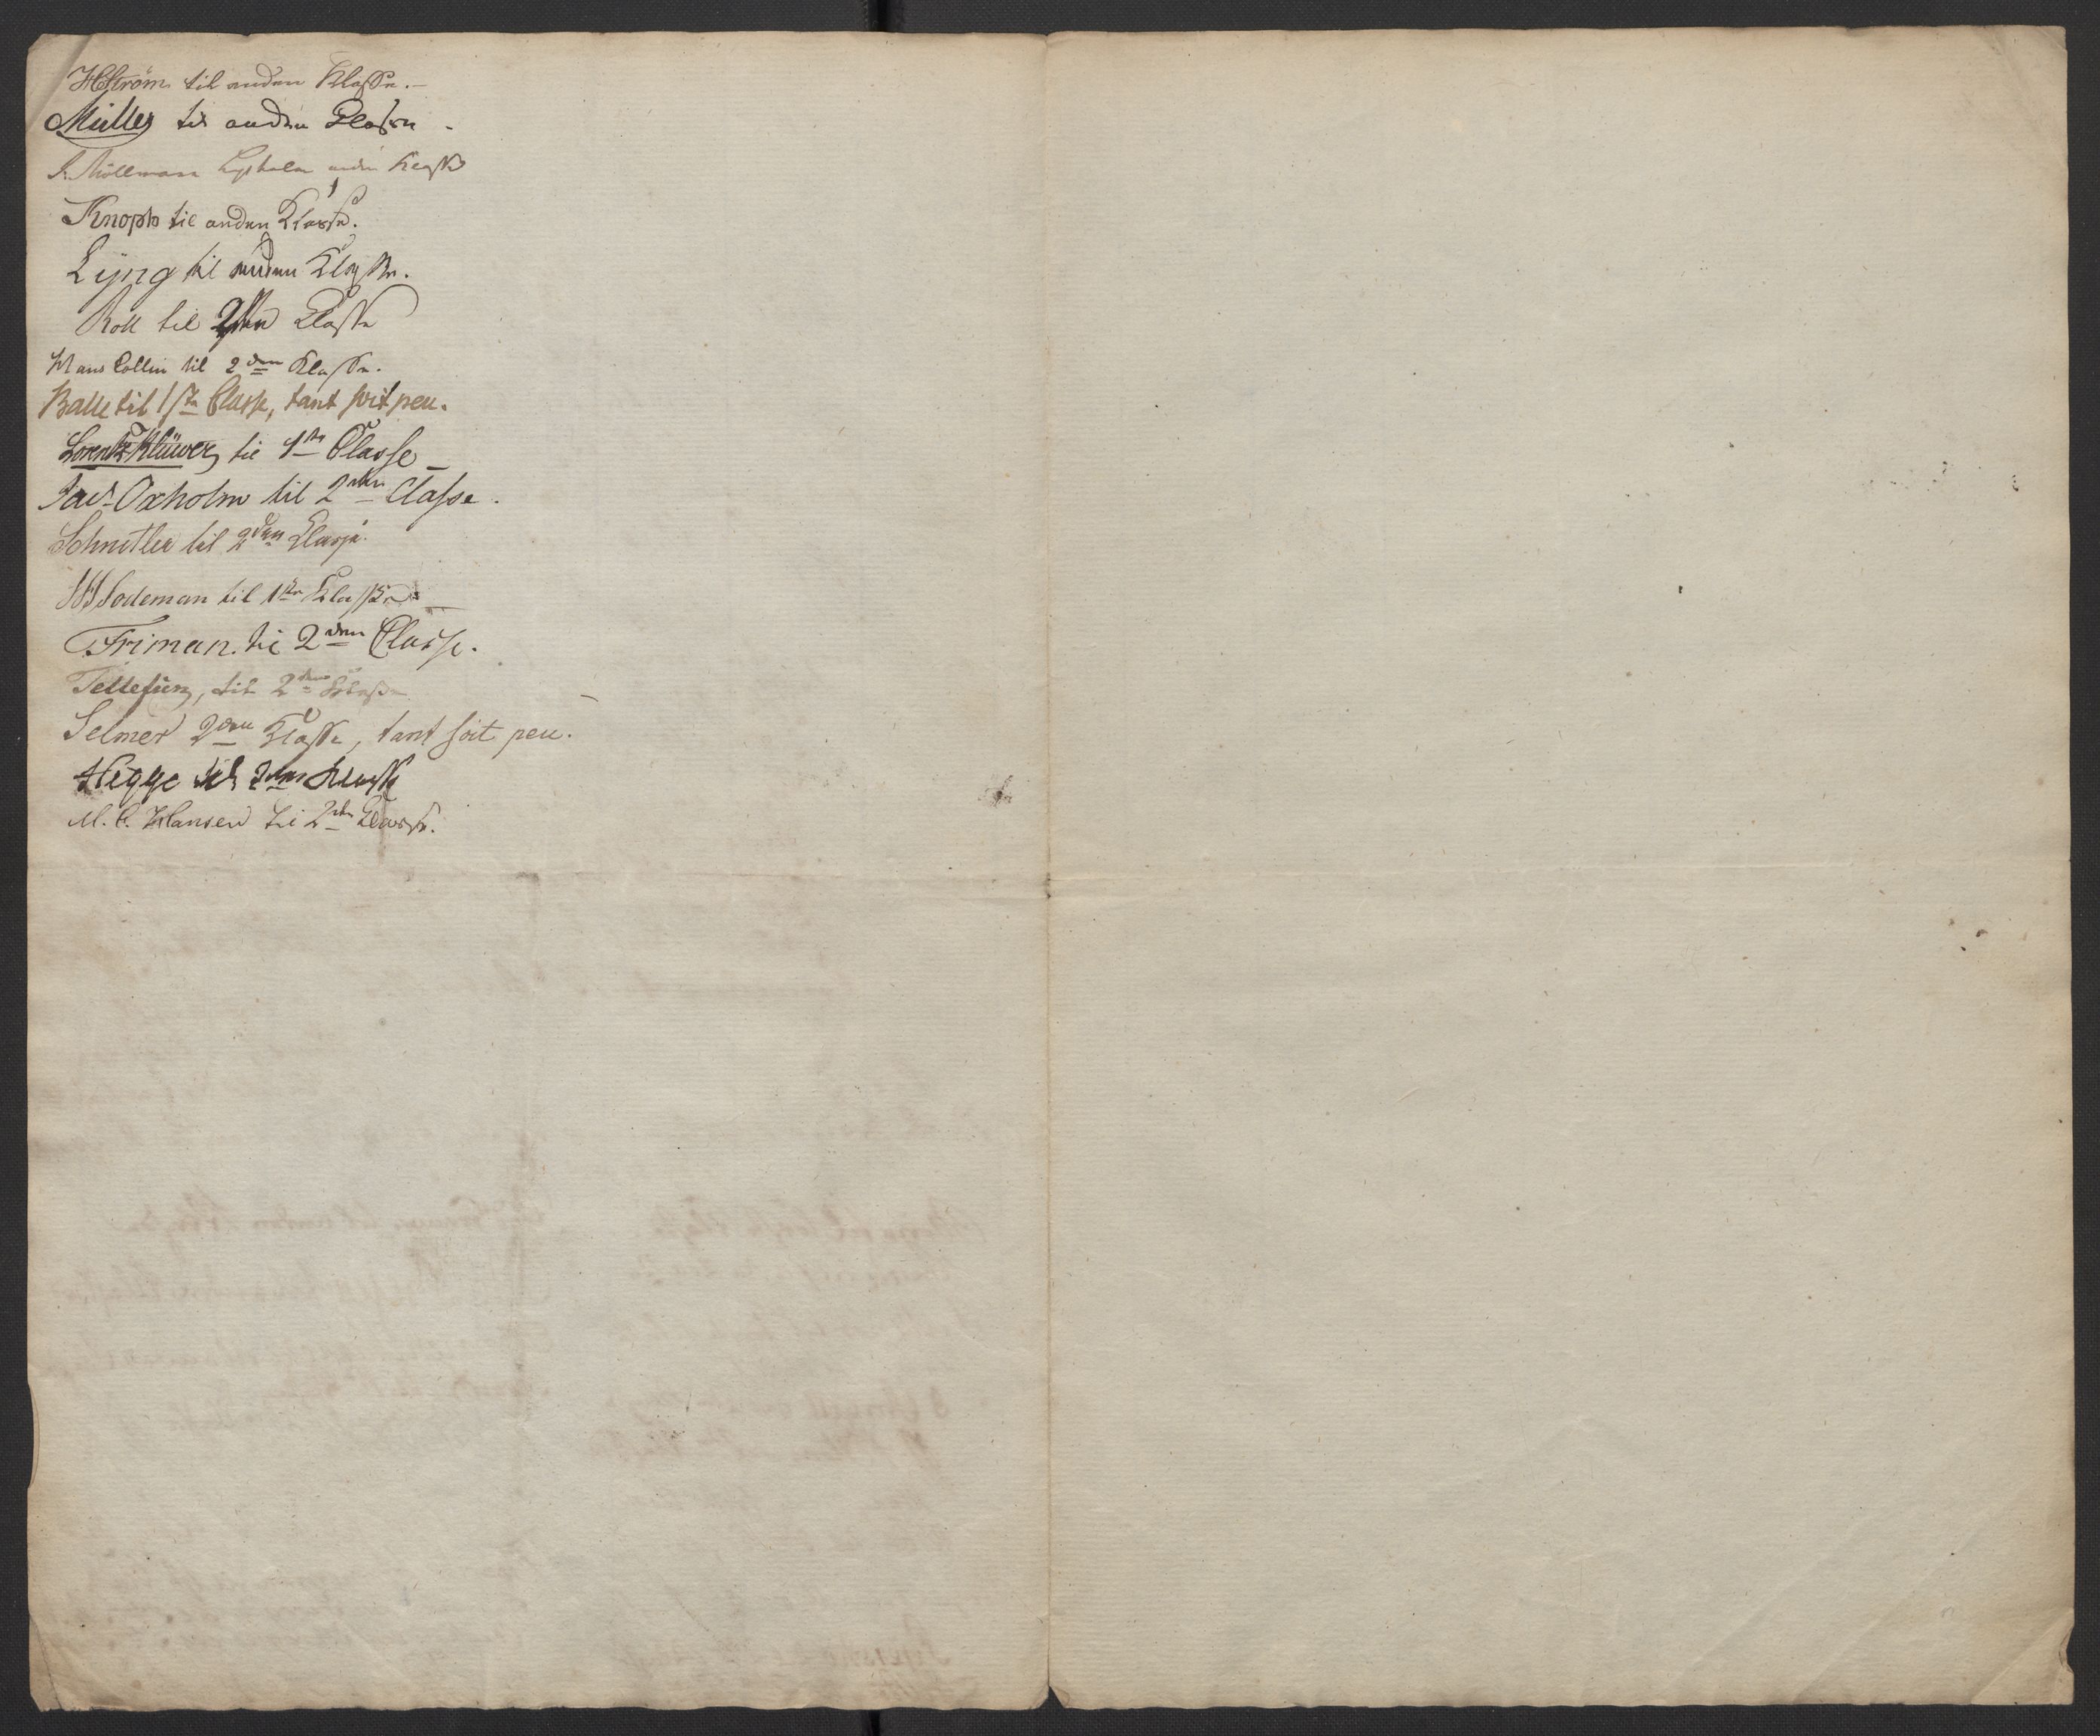 HStröm til anden Klasse.—
Müller til anden Classe -
Möllmann Lysholm anden Klasse
Knoph til anden Klasse.
Lÿng til anden Klasse.
Roll til 2den Classe
Hans Collin til 2den Klasse.
Balle til 1ste Classe, tant soit peu.
Lorentz Klüwer, til 1ste Classe —
Jac. Oxholm til 2den Classe.
Schnitler til 2den Classe.
Sodeman til 1ste Klasse —
Friman. til 2den Classe.
Tellefsen, til 2den Klasse
Selmer 2den Klasse, tant soit peu.
Hegge til 2den Klasse
M. C. Hansen til 2den Classe.